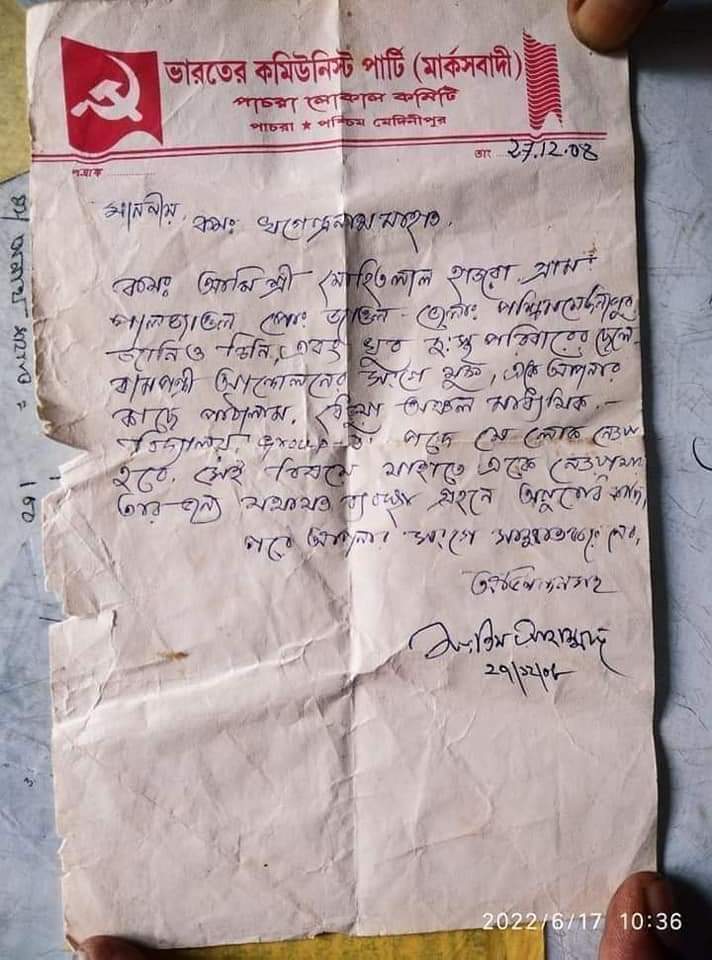 ভারতের কমিউনিস্ট পার্টি (মার্কসবাদী)
পাচরা লোকাল কমিটি
পাচরা ★ পশ্চিম মেদিনীপুর
পত্রাঙ্ক ............
তাং 27.12.08
মাননীয়,
কমঃ খগেন্দ্রনাথ মাহাত,
কমঃ আমি শ্রী মোহিতলাল হাজরা, গ্রাম-
পোঃ জেলাঃ পশ্চিমমেদিনীপুর
চিনি, এবং খুব দুঃস্থ পরিবারের ছেলে-
বামপন্থী আন্দোলনের সংগে যুক্ত, একে আপনার
কাছে পাঠালাম, অঞ্চল মাধ্যমিক -
বিদ্যালয়, group-D পদে যে লোক নেওয়া
হবে, সেই বিষয়ে যাহাতে একে নেওয়া যায়
তার জন্য যথাযথ ব্যবস্থা গ্রহনে অনুরোধ
পরে আপনার সংগে নেব,
অভিনন্দনসহ
27/12/08
2022/6/17 10:36